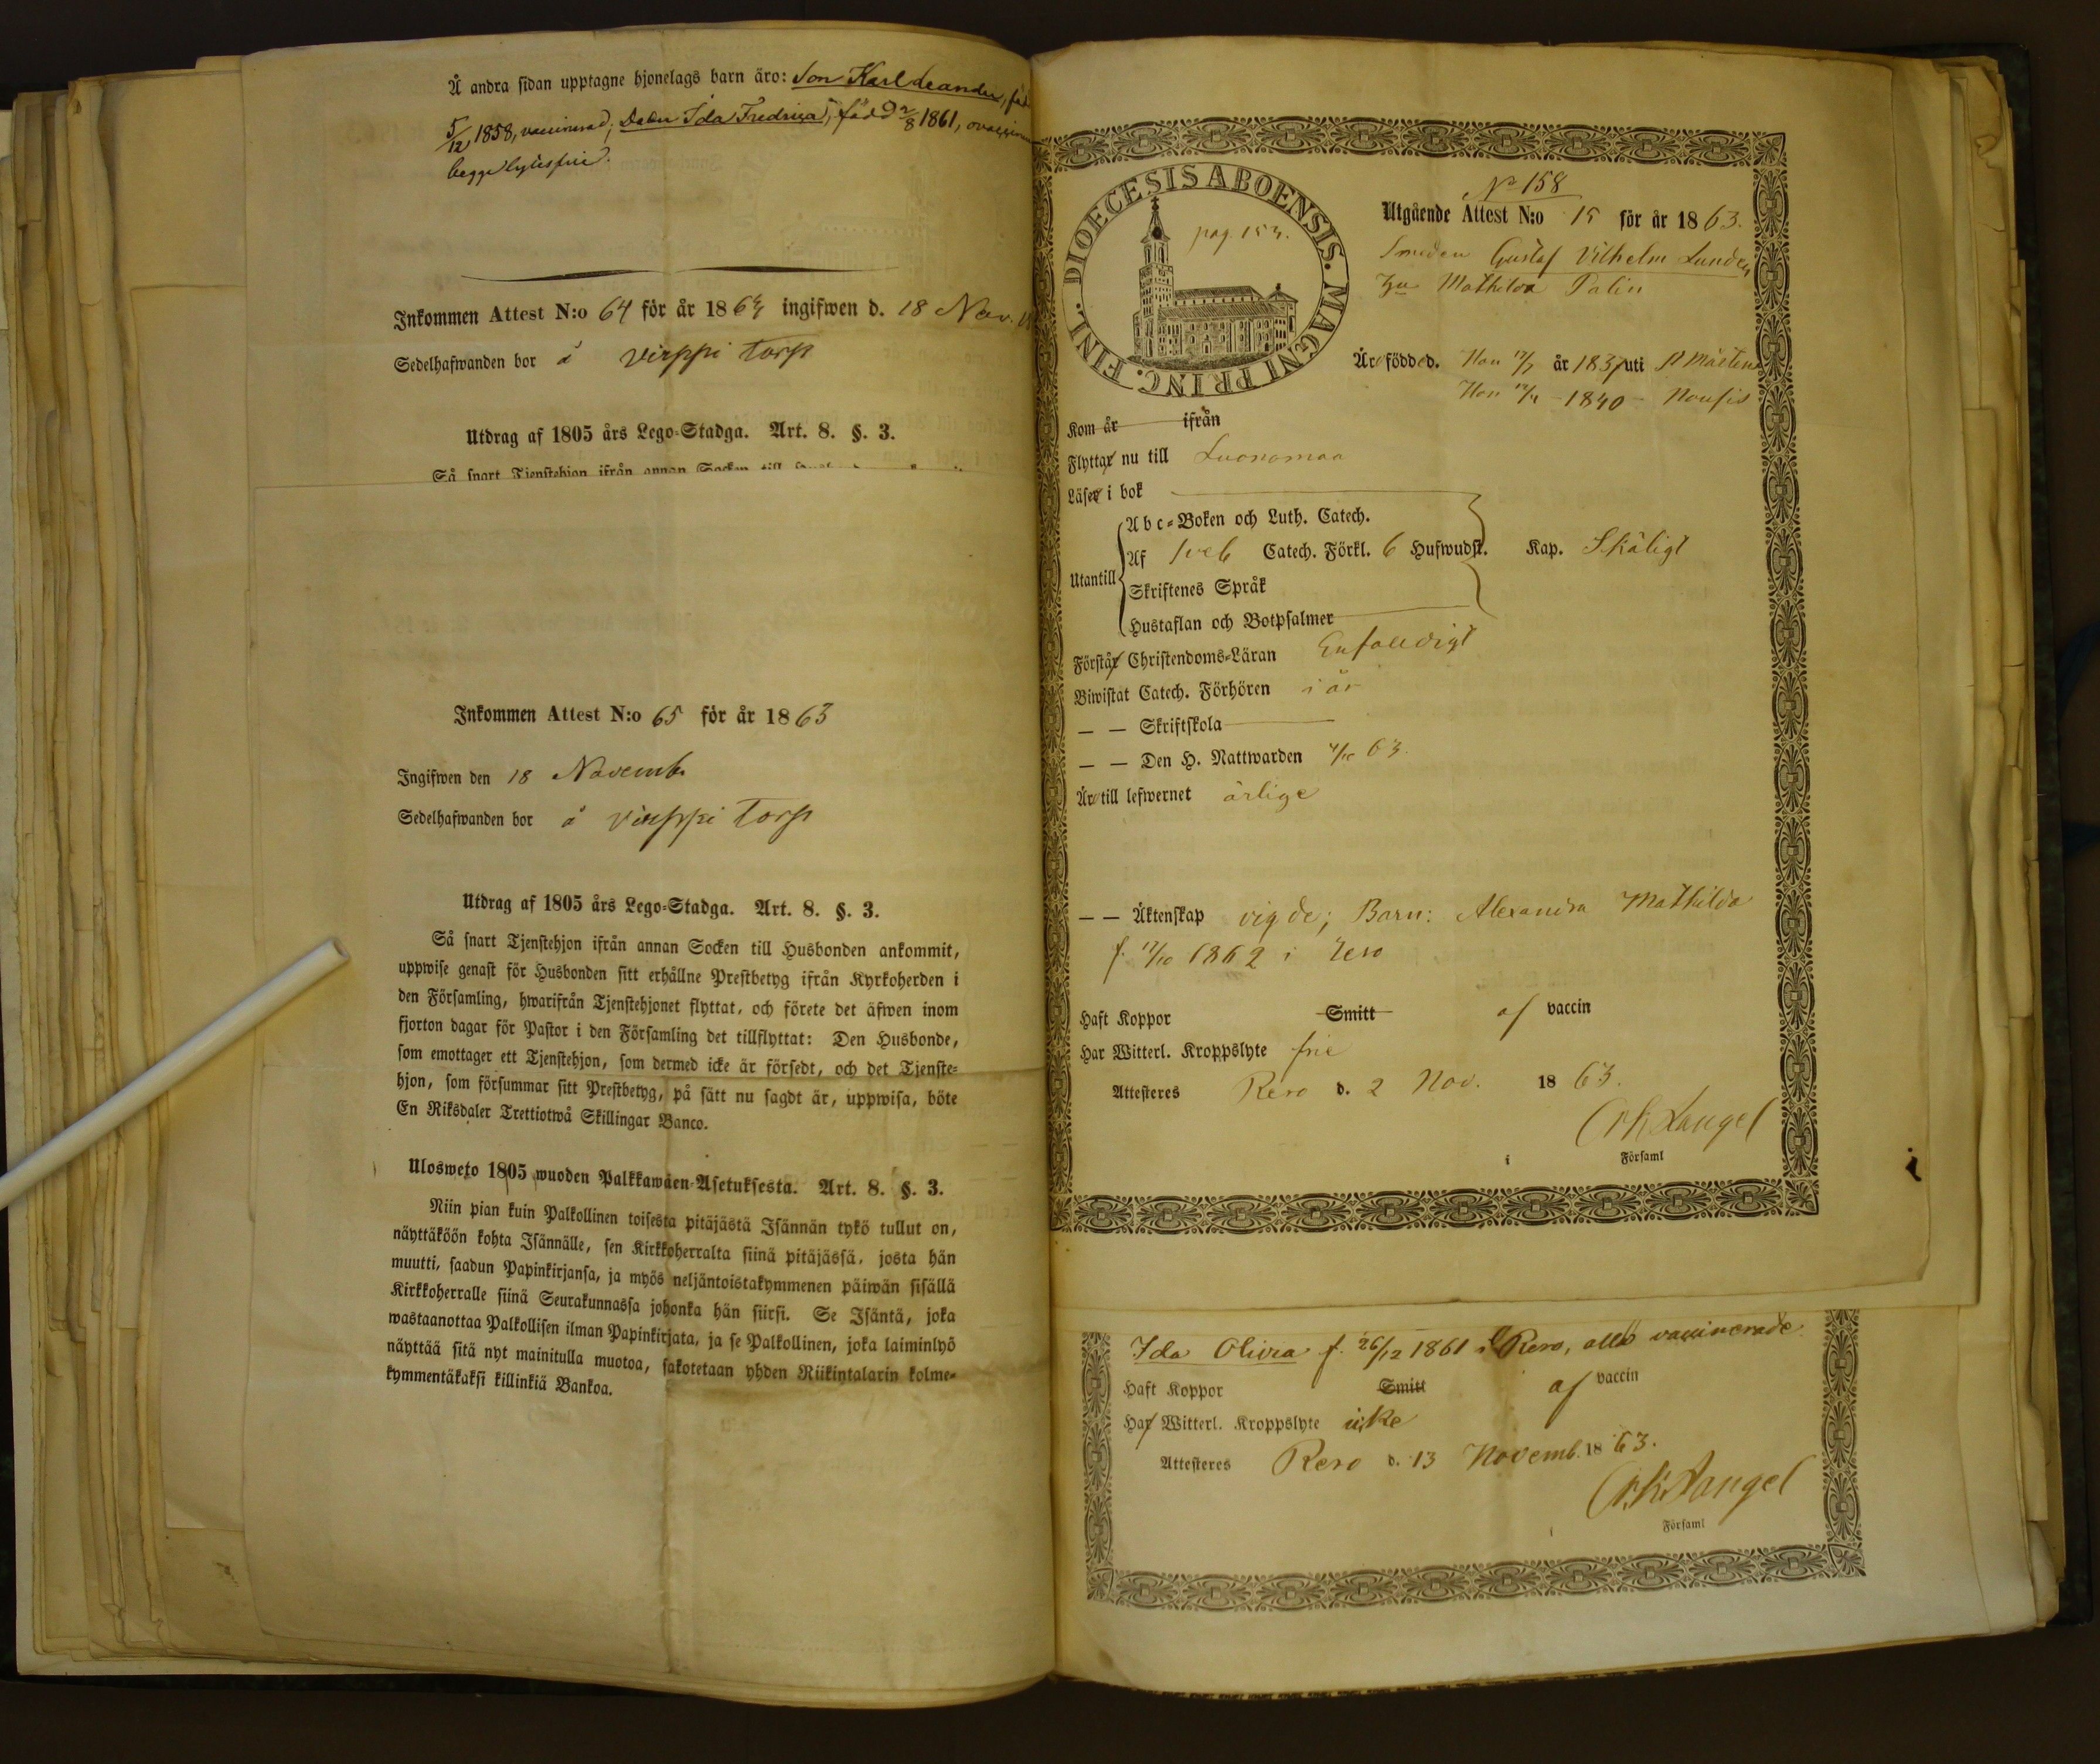 Å andra sidan upptagne hjonelags barn äro: Son Karl Leander, föd
5/12 1858, vaccinerad; Dotter Ida Fredrica, född 2/8 1861,
begge lytesfrie.
Inkommen Attest N:o 64 för år 1863 ingifwen d. 18 Nov.
Sedelhafwanden bor å Virppi torp
Utdrag af 1805 års Lego-Stadga. Art. 8. §. 3.
Så snart Tjenstehjon ifrån annan Socken till
Inkommen Attest N:o 65 för år 1863
Ingifwen den 18 Novemb.
Sedelhafwanden bor å Virppi torp
Utdrag af 1805 års Lego-Stadga. Art. 8. §. 3.
Så snart Tjenstehjon ifrån annan Socken till Husbonden ankommit,
uppwise genast för Husbonden sitt erhållne Prestbetyg ifrån Kyrkoherden i
den Församling, hwarifrån Tjenstehjonet flyttat, och förete det äfwen inom
fjorton dagar för Pastor i den Församling det tillflyttat: Den Husbonde,
som emottager ett Tjenstehjon, som dermed icke är försedt, och det Tjenste-
hjon, som försummar sitt Prestbetyg, på sätt nu sagdt är, uppwisa, böte
En Riksdaler Trettiotwå Skillingar Banco.
Ulosweto 1805 wuoden Palkkawäen-Asetuksesta. Art. 8. §. 3.
Niin pian kuin Palkollinen toisesta pitäjästä Isännän tykö tullut on,
näyttäköön kohta Isännälle, sen Kirkkoherralta siinä pitäjässä, josta hän
muutti, saadun Papinkirjansa, ja myös neljäntoistakymmenen päiwän sisällä
Kirkkoherralle siinä Seurakunnassa johonka hän siirsi. Se Isäntä, joka
wastaanottaa Palkollisen ilman Papinkirjata, ja se Palkollinen, joka laiminlyö
näyttää sitä nyt mainitulla muotoa, sakotetaan yhden Riikintalarin kolme-
kymmentäkaksi killinkiä Bankoa.
DIOECESIS ABOENSIS. MAGNI PRINC. FINL.
pag. 153.
No 158
Utgående Attest N:o 15 för år 1863.
Smeden Gustaf Vilhelm Lunden
Hu Mathilda Palin
Äro födde d. Han 17/7 år 1837 uti St Mårtens
Hon 1840 - Nousis
Kom år ifrån
Flytta nu till Luonomaa
Läse i bok
Utantill
Abc-Boken och Luth. Catech.
Af Sveb Catech. Förkl. 6 Hufwudst. Kap. Skäligt
Skriftenes Språk
Hustaflan och Botpsalmer
Förstå Christendoms-Läran Enfaldigt
Biwistat Catech. Förhören i år
— — Skriftskola
— — Den H. Nattwarden 63.
Äro till lefwernet ärlige
— — Äktenskap vigde; Barn: Alexandra Mathilda
f. 17/10 1862 i Rero
Haft Koppor Smitt af vaccin
Har Witterl. Kroppslyte frie
Attesteres Reso d. 2 Nov. 1863.
Langel
i Församl
Ida Olivia f. 26/12 1861 i Reso, alla vaccinerade
Haft Koppor Smitt af vaccin
Ha Witterl. Kroppslyte icke
Attesteres Reso d. 13 Novemb. 1863.
Langel
i Församl